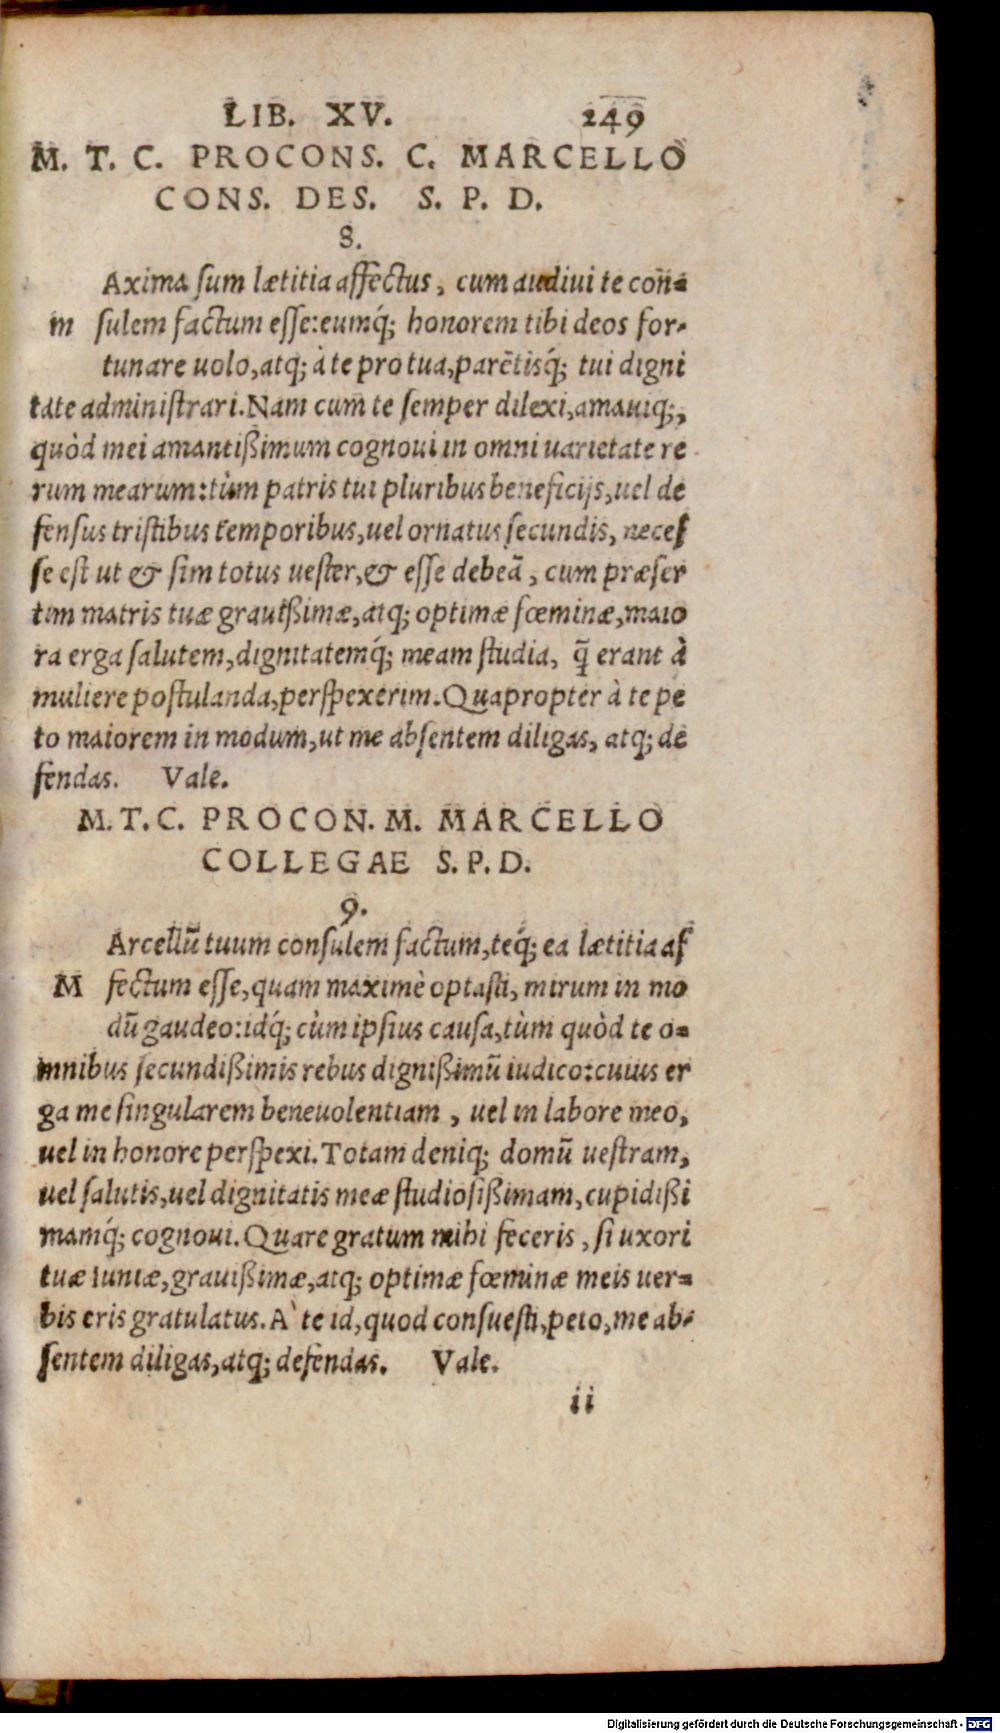 LIB. XV. 249
M. T. C. PROCONS. C. MARCELLO
CONS. DES. S. P. D.
8.
Axima sum lætitia affectus, cum audiui te con=
m sulem factum esse: eumq́; honorem tibi deos for-
tunare uolo, atq; à te pro tua, parētisq́; tui digni
tate administrari. Nam cum te semper dilexi, amauiq;,
quòd mei amantißimum cognoui in omni uarietate re
rum mearum: tùm patris tui pluribus beneficijs, uel de
fensus tristibus temporibus, uel ornatus secundis, neces
se est ut & sim totus uester, & esse debeā, cum præser
tim matris tuæ grauißimæ, atq; optimæ fœminæ, maio
ra erga salutem, dignitatemq́; meam studia, q̄ erant à
muliere postulanda, perspexerim. Quapropter à te pe
to maiorem in modum, ut me absentem diligas, atq; de
fendas. Vale.
M. T. C. PROCON. M. MARCELLO
COLLEGAE S. P. D.
9.
Arcellū tuum consulem factum, teq́; ea lætitia af
M fectum esse, quam maximè optasti, mirum in mo
dū gaudeo: idq́; cùm ipsius causa, tùm quòd te o=
mnibus secundißimis rebus dignißimū iudico: cuius er
ga me singularem beneuolentiam, uel in labore meo,
uel in honore perspexi. Totam deniq; domū uestram,
uel salutis, uel dignitatis meæ studiosißimam, cupidißi
mamq́; cognoui. Quare gratum mihi feceris, si uxori
tuæ Iuniæ, grauißimæ, atq; optimæ fœminæ meis uer=
bis eris gratulatus. A` te id, quod consuesti, peto, me ab-
sentem diligas, atq; defendas. Vale.
ii
Digitalisierung gefördert durch die Deutsche Forschungsgemeinschaft - DFG